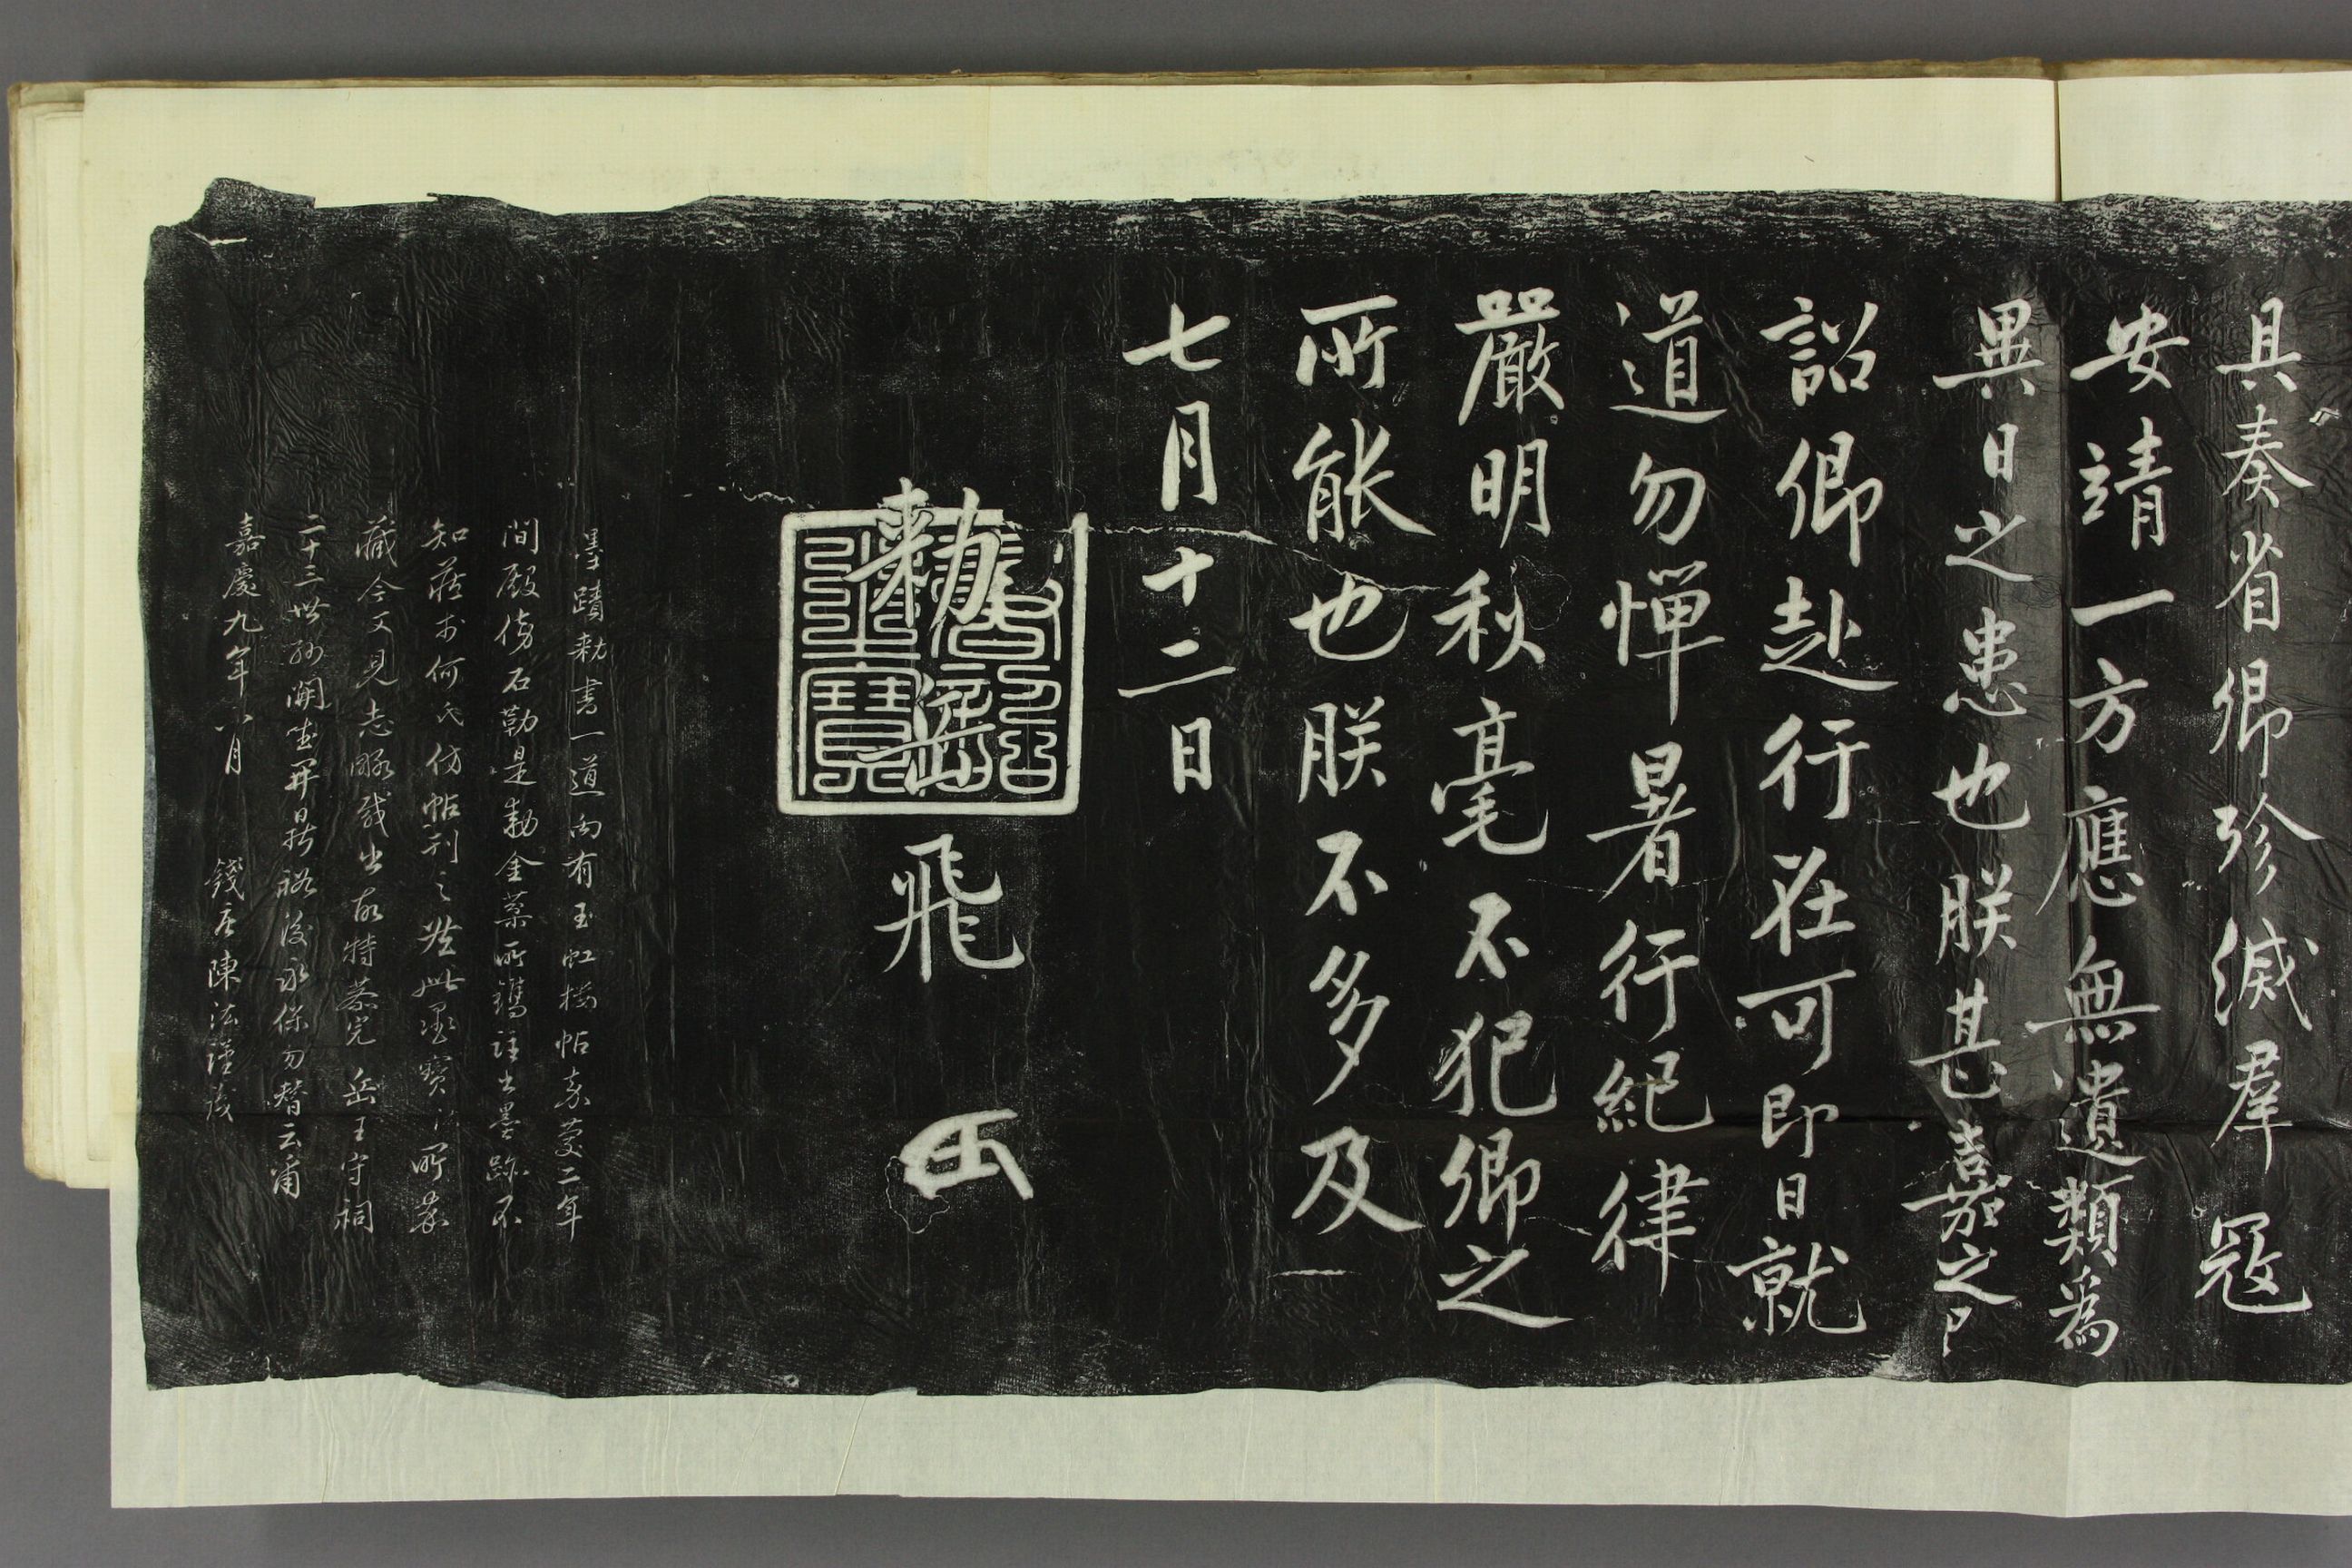 具奏省卿殄滅羣寇
安靖一方應無遺類為
異日之患也朕甚嘉之已
詔卿赴行在可即日就
道勿憚暑行紀律
嚴明秋毫不犯卿之
所能也朕不多及
七月十二日
勅岳飛
墨蹟勅書一道向有玉虹樓帖嘉慶二年
間殿傍石勒是勅金葉所鐫註出墨跡不
知藏於何氏仿帖刊之茲此墨寶
藏今又見志 特 岳王守祠
二十三世孫開 裕後永保勿替云爾
嘉慶九年八月 錢唐陳法謹識